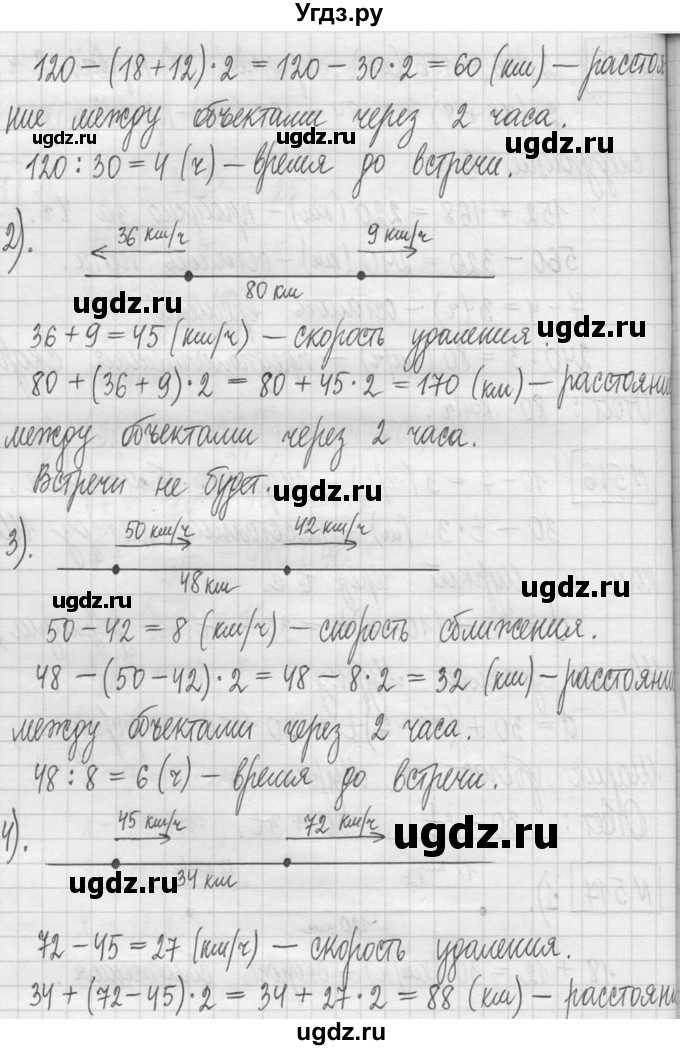 Угдз.ру
120 – (18 + 12) · 2 = 120 – 30 · 2 = 60 (км) – расстоя
ние между объектами через 2 часа.
ugdz.ru ugdz.ru ugdz.ru
120 : 30 = 4 (ч) – время до встречи.
2). 36 км/ч 9 км/ч
80 км
ugdz.ru ugdz.ru
36 + 9 = 45 (км/ч) – скорость удаления.
80 + (36 + 9) · 2 = 80 + 45 · 2 = 170 (км) – расстояни
между объектами через 2 часа.
Встречи не будет.
ugdz.ru
3). 50 км/ч 42 км/ч
48 км
ugdz.ru ugdz.ru ugdz.ru
50 – 42 = 8 (км/ч) – скорость сближения.
48 – (50 – 42) · 2 = 48 – 8 · 2 = 32 (км) – расстояни
между объектами через 2 часа.
48 : 8 = 6 (ч) – время до встречи.
4). 45 км/ч 72 км/ч
ugdz.ru
34 км
ugdz.ru
72 – 45 = 27 (км/ч) – скорость удаления.
34 + (72 – 45) · 2 = 34 + 27 · 2 = 88 (км) – расстояни
ugdz.ru